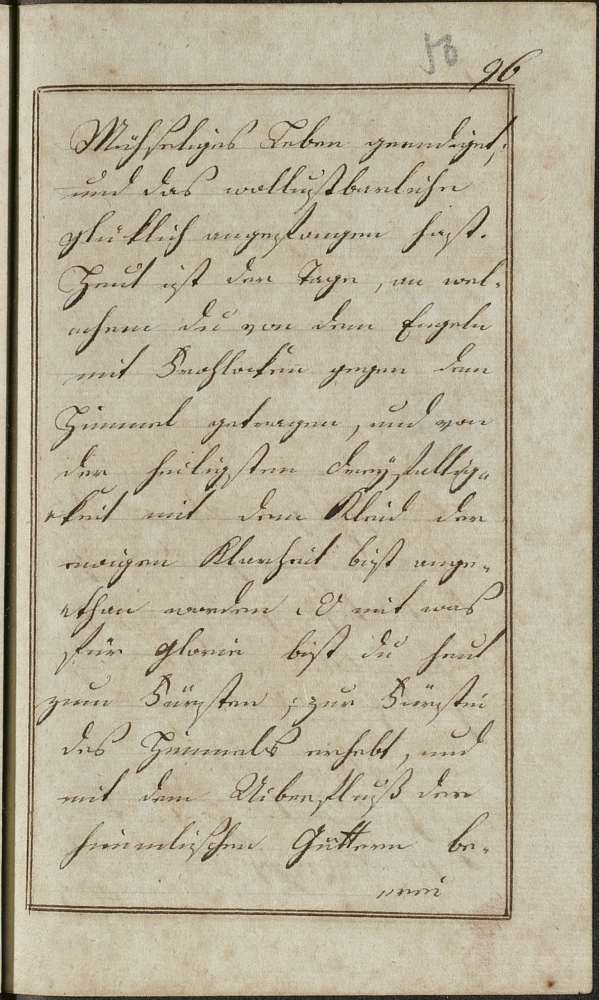 58
96
Mühseliges Leben geendiget,
und das wollustbarliche
glüklich angefangen hast.
Heut ist der Tage, an wel-
chem du von dem Engeln
mit Frohlocken gegen dem
Himmel getragen, und von
der heiligsten dreyfaltig-
keit mit dem Kleid der
ewigen Klarheit bist ange-
than worden. O mit was
für glorie bist du heut
zum Fürsten, zur Fürstin
des Himmels erhebt, und
mit dem Uiberfluß der
himmlischen Güttern be-